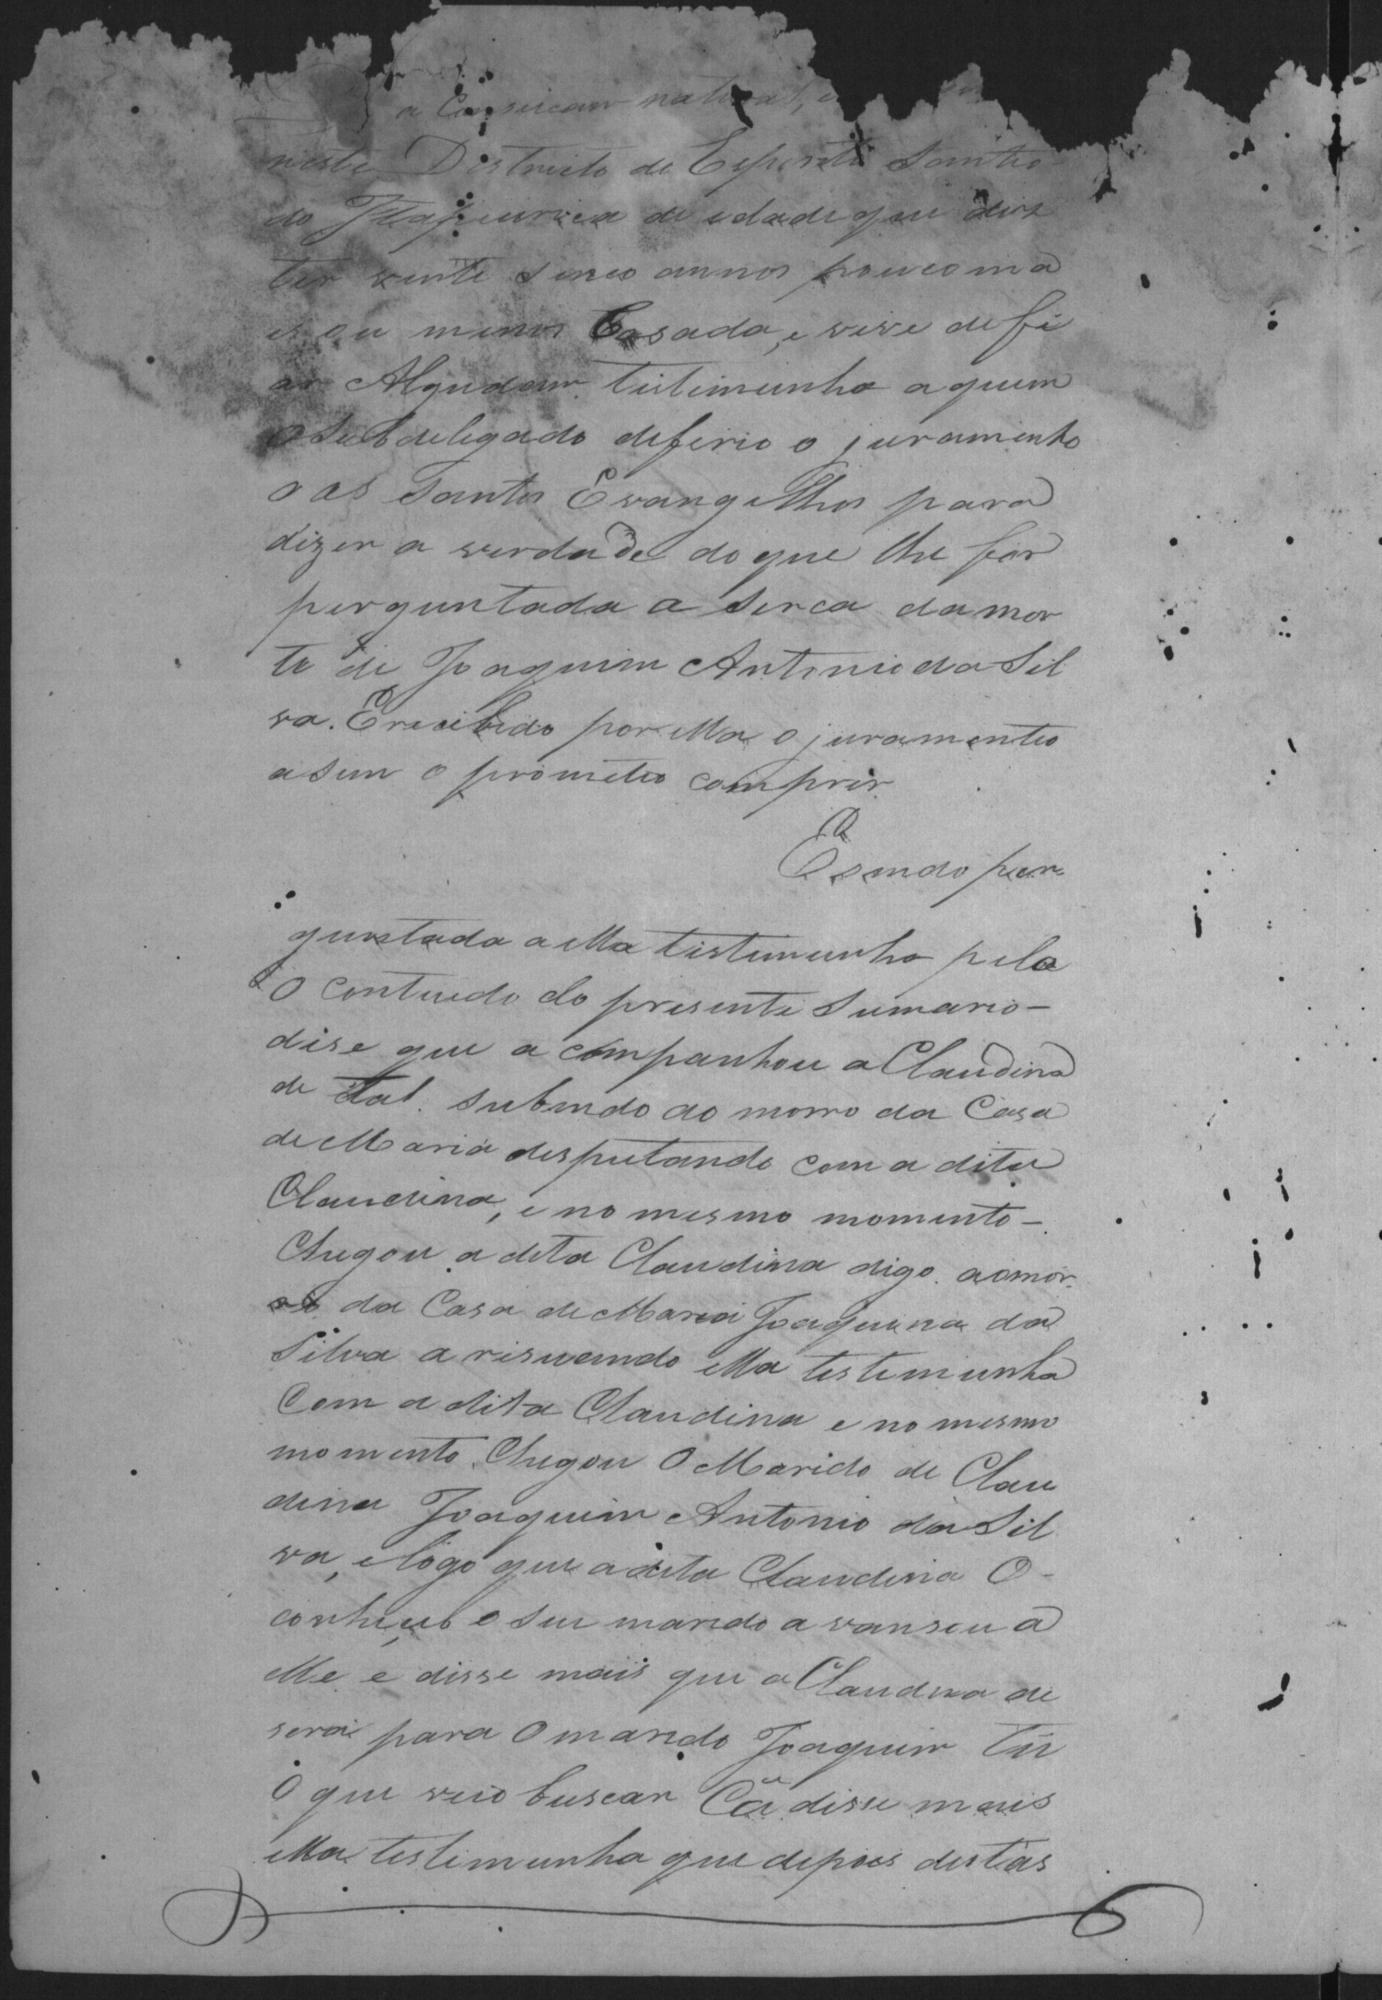 a Conseicam natural, e
neste Destricto de Esperito Santo
do Itapecurica de edade que dise
ter vinte sinco annos pouco ma
is ou menos Casada, e vive de fi
ar Algudam. testimunha a quem
o Subdelegado deferio o juramento
aos Santos Evangelhos para
dizer a verdade do que lhe for
perguntada a serca da mor
te de Joaquim Antonio da Sil
va. E recebido por ella o juramento
asim o prometeo comprir.
E sendo per-
guntada a ella testemunha pelo
o contuedo do presente Sumario-
dise que a companhou a Claudina
de tal. subindo ao morro da Casa
de Maria desputando com a dita
Claudina, e no mesmo momento-
Chegou a dita Claudina digo. ao mor
ro da Casa de Maria Joaquina da
Silva a risucando ella testemunha
Com a dita Claudina e no mesmo
momento Chegou O Marido de Clau
dina Joaquim Antonio da Sil
va, e logo que a dita Claudina O-
conheceo o seu marido a vansou a
elle e disse mais que a Claudina de
sera para O marido Joaquim tu
O que veio buscar Cá disse mais
ella testemunha que depois destas